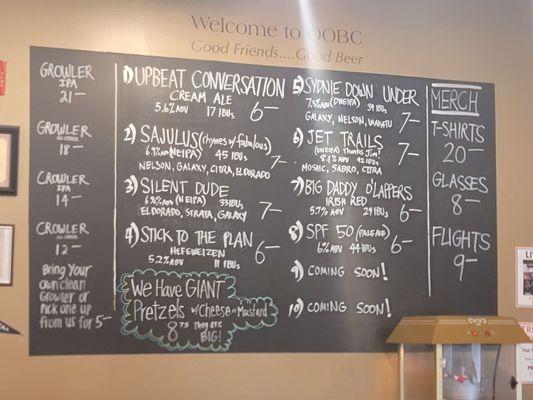 Welcome to OOBC
Good Friends....Good Beer
GROWLER
IPA
21-
GROWLER
18-
CROWLER
IPA
14-
CROWLER
12-
Bring your
own clean
Growler or
Pick one up
from us for 5-
1) UPBEAT CONVERSATION
CREAM ALE
5.6% ABV 17 IBUs 6-
2) SAJULUS (rhymes w/ fabulous)
(NEIPA) 45 IBUs 7-
NELSON, GALAXY, CITRA, ELDORADO
3) SILENT DUDE
(NEIPA) 33 IBUs
ELDORADO, STRATA, GALAXY 7-
4) STICK TO THE PLAN
HEFEWEIZEN 6-
5.2% ABV 11 IBUs
We Have GIANT
Pretzels w/ Cheese or Mustard
8.75 They are
BIG!
5) SYDNIE DOWN UNDER
7.5% ABV (DNEIPA) 39 IBUs
GALAXY, NELSON, WAKATU 7-
6) JET TRAILS
(DNEIPA) Thanks Jim!
8.4% ABV 42 IBUs 7-
MOSAIC, SABRO, CITRA
7) BIG DADDY O'LAPPERS
IRISH RED
5.7% ABV 29 IBUs 6-
8) SPF 50 (PALE ALE)
6% ABV 44 IBUs 6-
9) COMING SOON!
10) COMING SOON!
MERCH
T-SHIRTS
20-
GLASSES
8-
FLIGHTS
9-